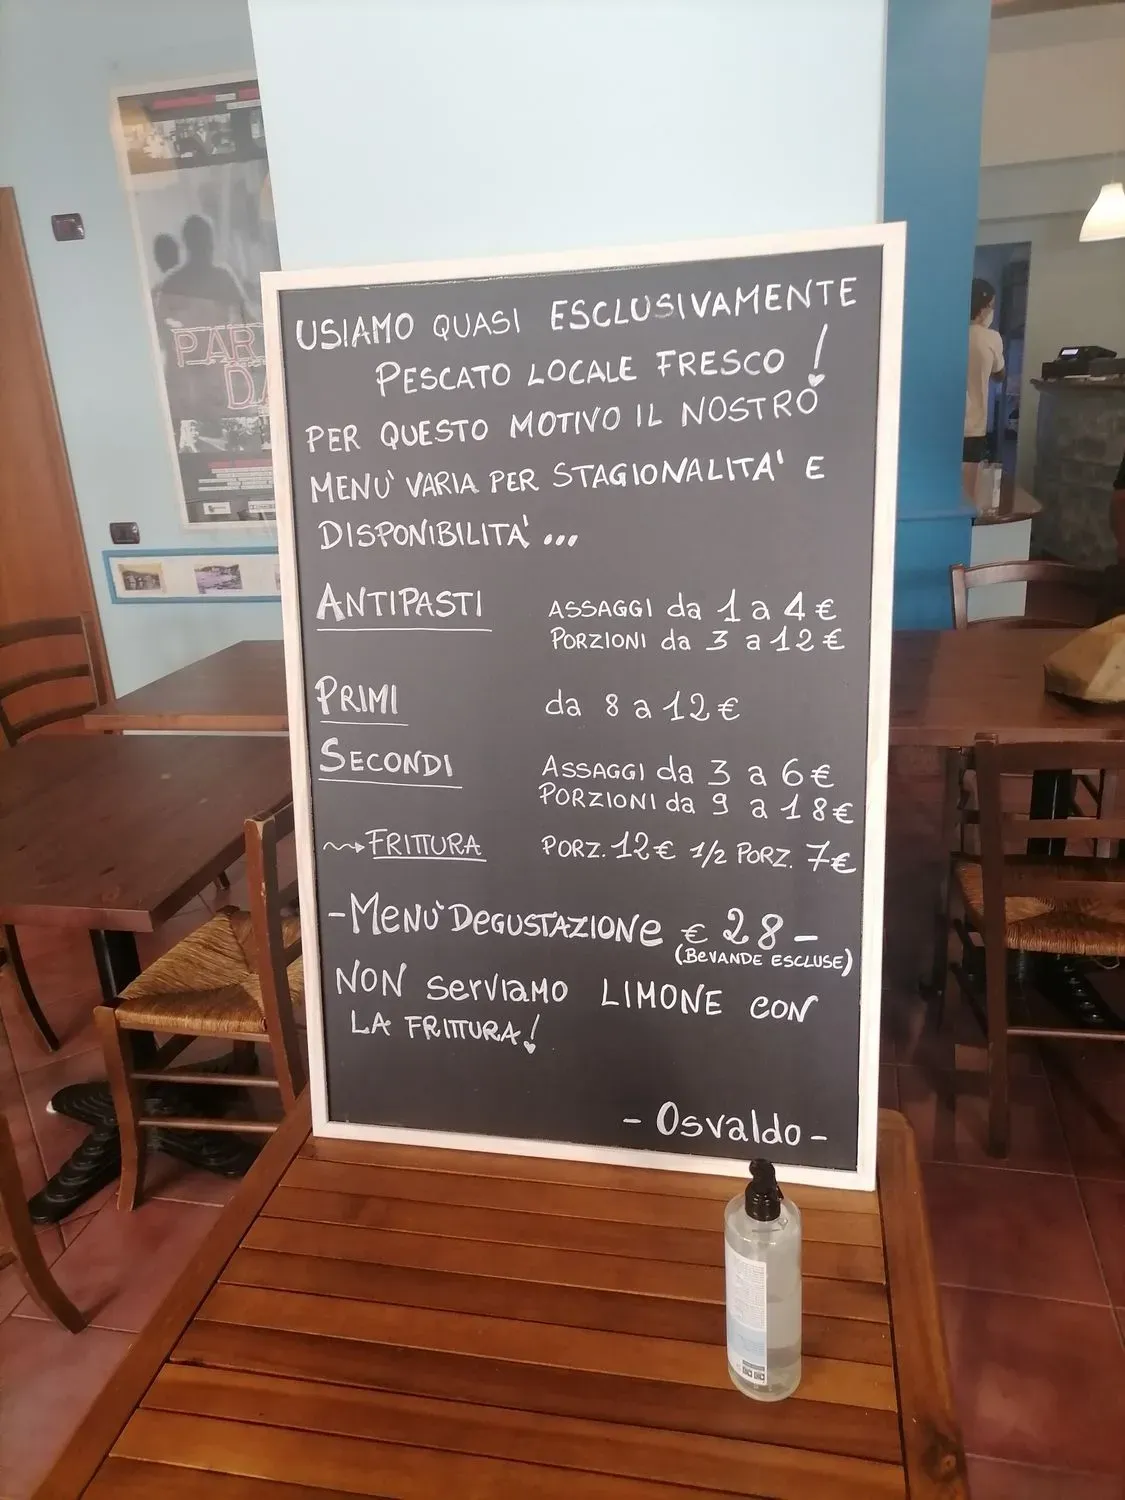 USIAMO QUASI ESCLUSIVAMENTE
PESCATO LOCALE FRESCO!
PER QUESTO MOTIVO IL NOSTRO
MENU' VARIA PER STAGIONALITA' E
DISPONIBILITA' ...
ANTIPASTI ASSAGGI da 1 a 4 €
PORZIONI da 3 a 12 €
PRIMI da 8 a 12 €
SECONDI ASSAGGI da 3 a 6 €
PORZIONI da 9 a 18 €
FRITTURA PORZ. 12 € 1/2 PORZ. 7 €
- MENU' DEGUSTAZIONE € 28 -
(BEVANDE ESCLUSE)
NON serviamo LIMONE CON
LA FRITTURA!
- Osvaldo -